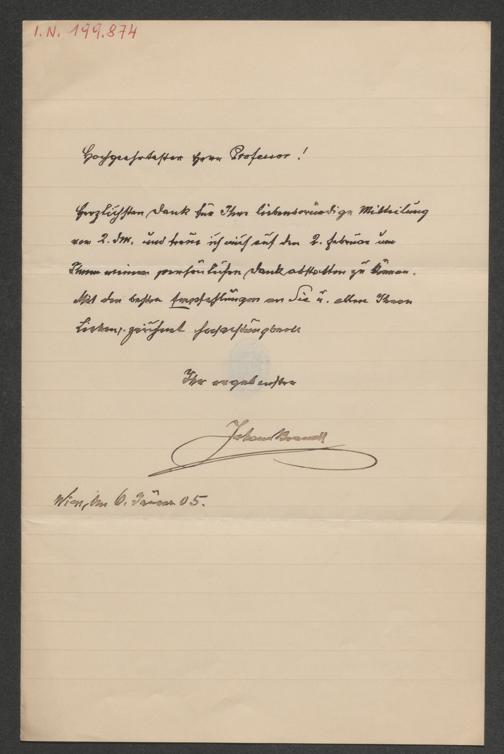 I.N. 199.874
Hochgeehrtester Herr Professor!
Herzlichsten Dank für Ihre liebenswürdige Mitteilung
vom 2. dM. und freue ich mich auf den 2. Februar um
Ihnen meinen persönlichen Dank abstatten zu können.
Mit den besten Empfehlungen an Sie u. allen Ihren
Lieben, zeichnet hochachtungsvoll
Ihr ergebenster
Johann Brandl
Wien, am 6. Jänner 05.